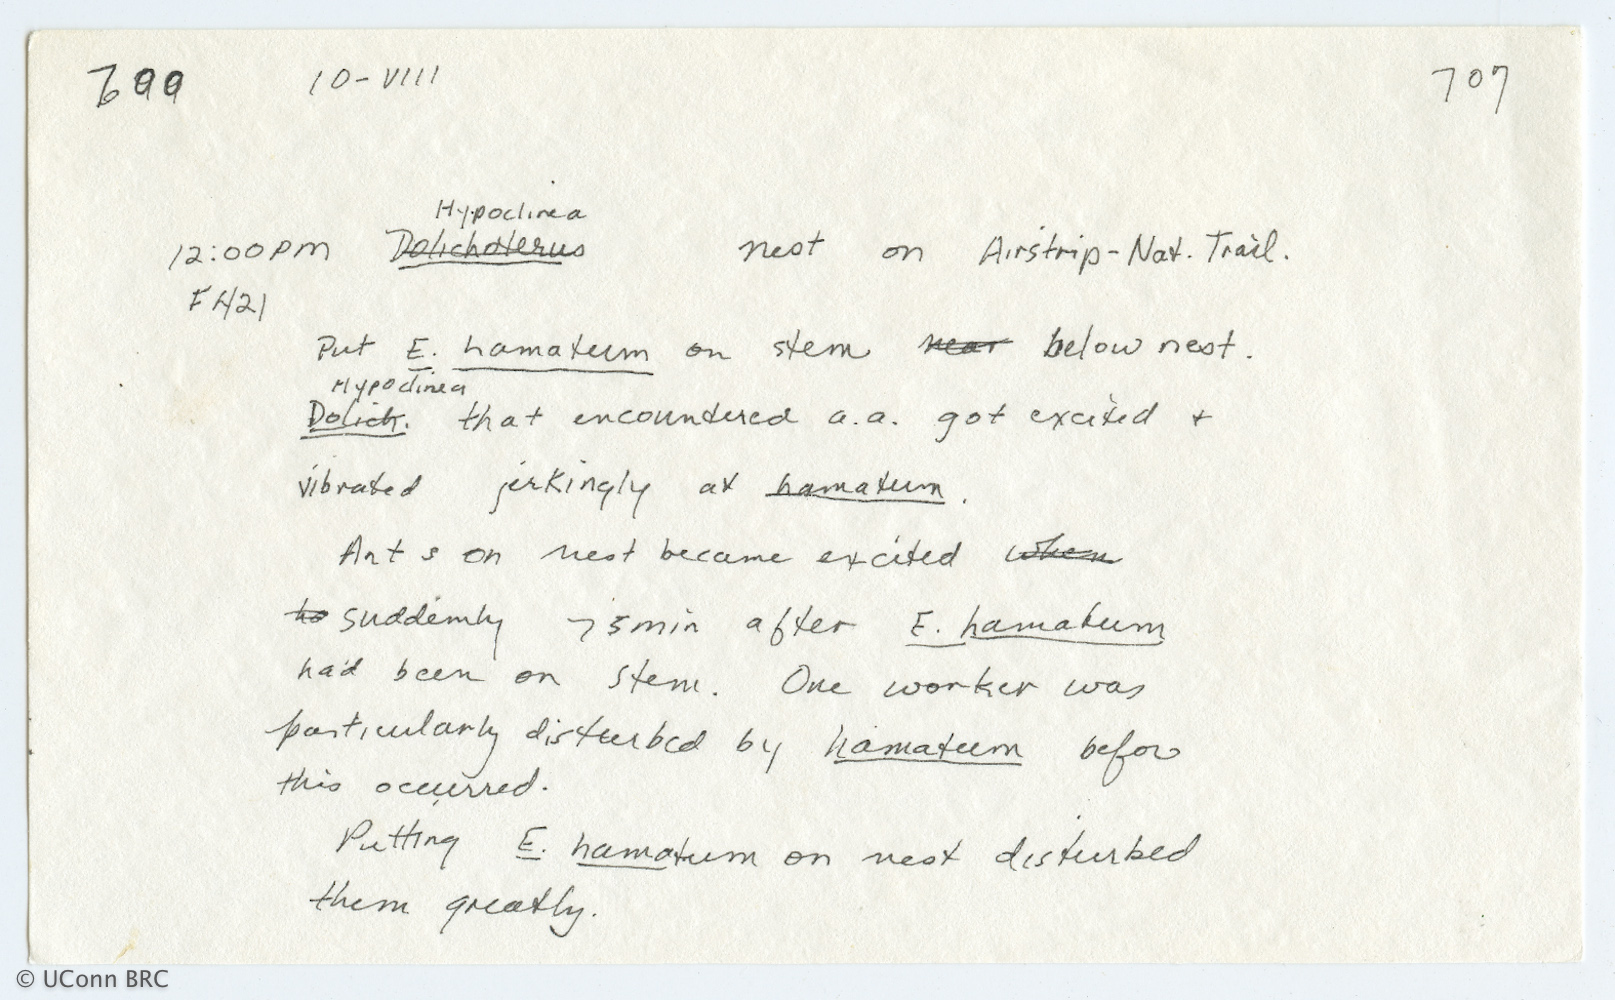 699 10-VIII 707
Hypoclinea
12:00PM Dolichoderus nest on Airstrip-Nat. Trail.
Put E. hamatum on stem near below nest.
Hypoclinea
Dolich. that encountered a.a. got excited +
vibrated jerkingly at hamatum.
Ants on nest became excited when
to suddenly 75min after E. hamatum
had been on stem. One worker was
particularly disturbed by hamatum before
this occurred.
Putting E. hamatum on nest disturbed
them greatly.
© UConn BRC